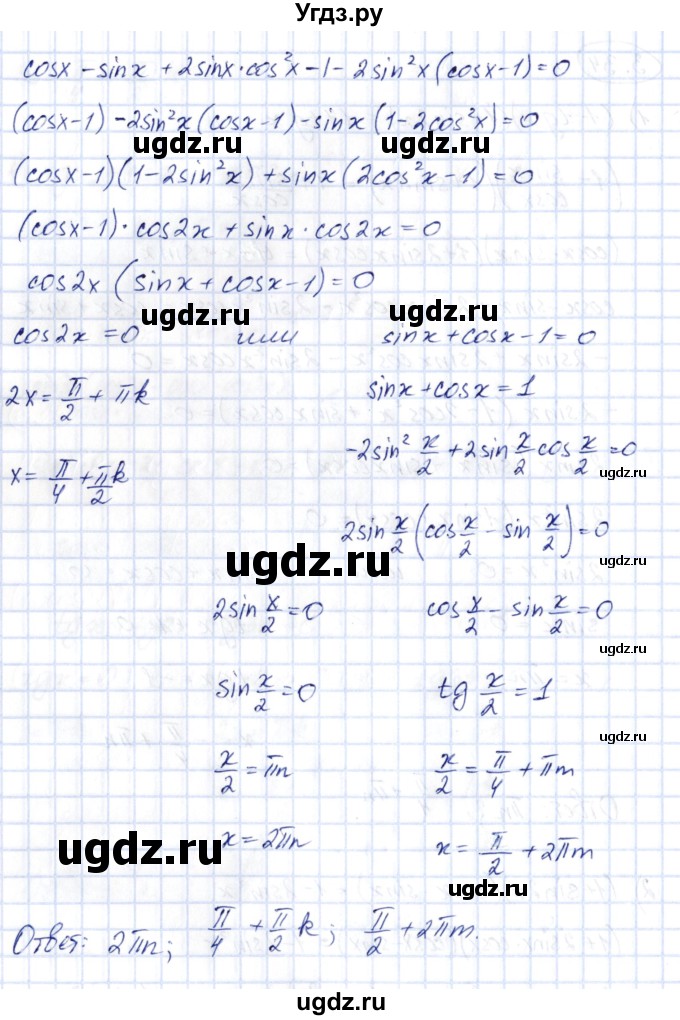 Угдз.ру
cosx - sinx + 2sinx·cos²x - 1 - 2sin²x(cosx-1)=0
(cosx-1) - 2sin²x(cosx-1) - sinx(1-2cos²x)=0
ugdz.ru ugdz.ru
(cosx-1)(1-2sin²x) + sinx(2cos²x-1)=0
(cosx-1)·cos2x + sinx·cos2x=0
cos2x (sinx+cosx-1)=0
ugdz.ru ugdz.ru
cos2x=0 или sinx+cosx-1=0
2x = π/2 + πk sinx+cosx=1
x = π/4 + π/2 k -2sin² x/2 + 2sin x/2 cos x/2 =0
ugdz.ru
2sin x/2 (cos x/2 - sin x/2)=0
ugdz.ru
2sin x/2 =0 cos x/2 - sin x/2 =0
ugdz.ru
sin x/2 =0 tg x/2 = 1
ugdz.ru
x/2 = πn x/2 = π/4 + πm
x=2πn x = π/2 + 2πm
ugdz.ru
ugdz.ru
Ответ: 2πn; π/4 + π/2 k; π/2 + 2πm.
ugdz.ru